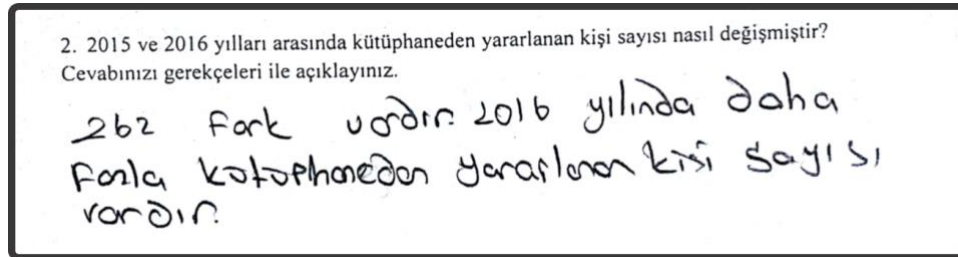 2. 2015 ve 2016 yılları arasında kütüphaneden yararlanan kişi sayısı nasıl değişmiştir?
Cevabınızı gerekçeleri ile açıklayınız.
262 fark vardır. 2016 yılında daha
fazla kütüphaneden yararlanan kişi sayısı
vardır.